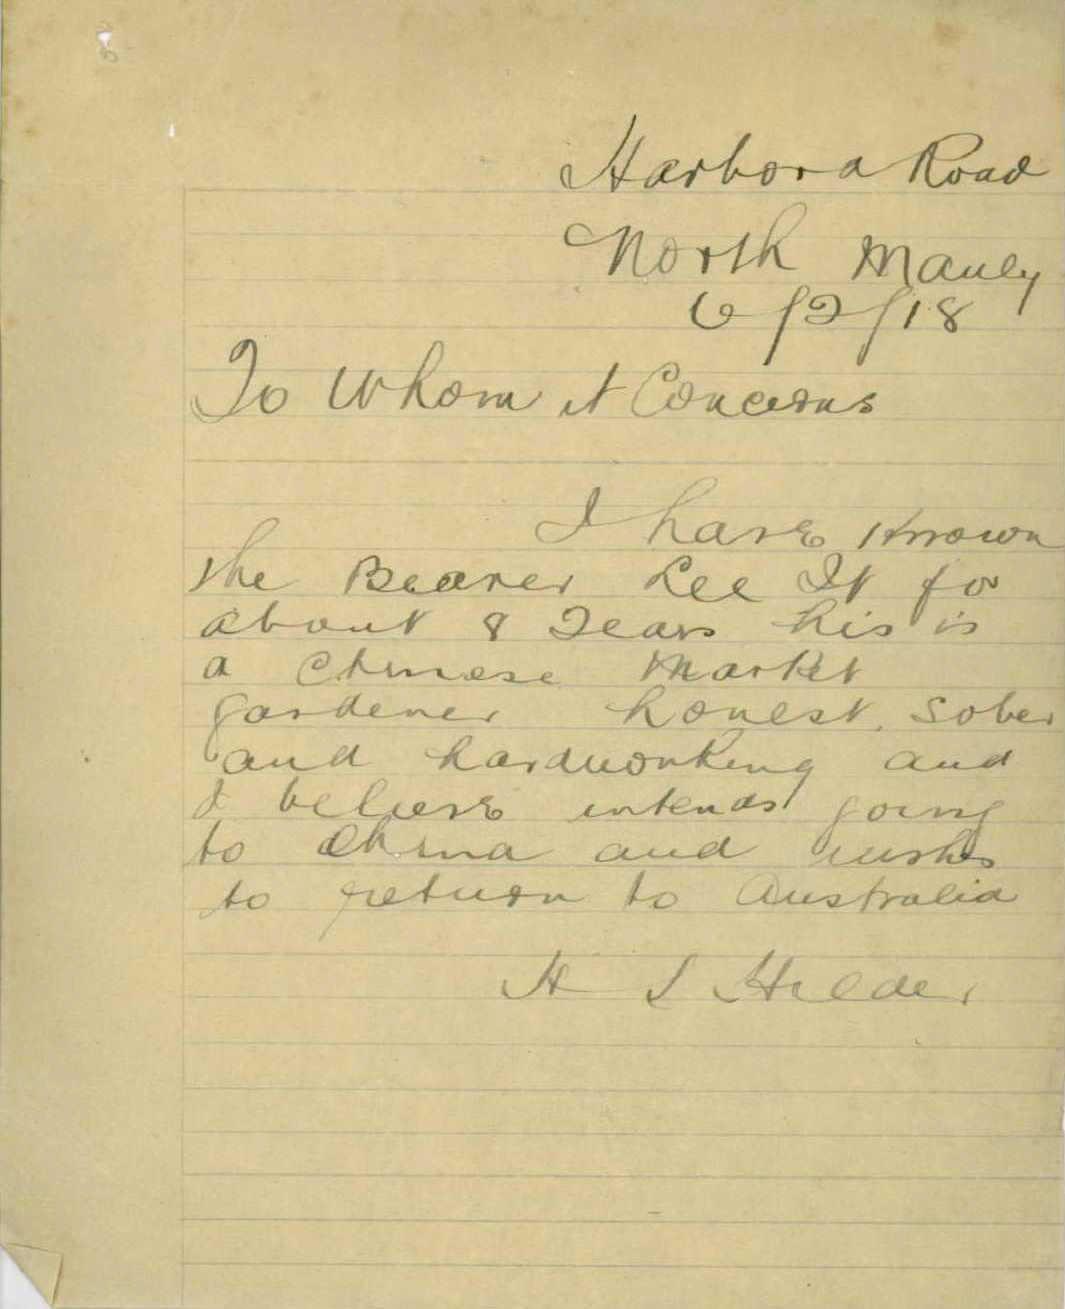 Harbord Road
North Manly
6/2/18
To Whom it Concerns
I have Known
the Bearer Lee It for
about 8 Years his is
a Chinese Market
gardener honest, sober
and hardworking and
I believe intends going
to China and wishes
to return to Australia
H S Hilder